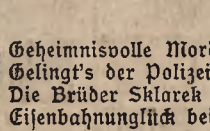 Geheimnisvolle Mord
Gelingt's der Polizei
Die Brüder Sklarek
Eisenbahnunglück bei